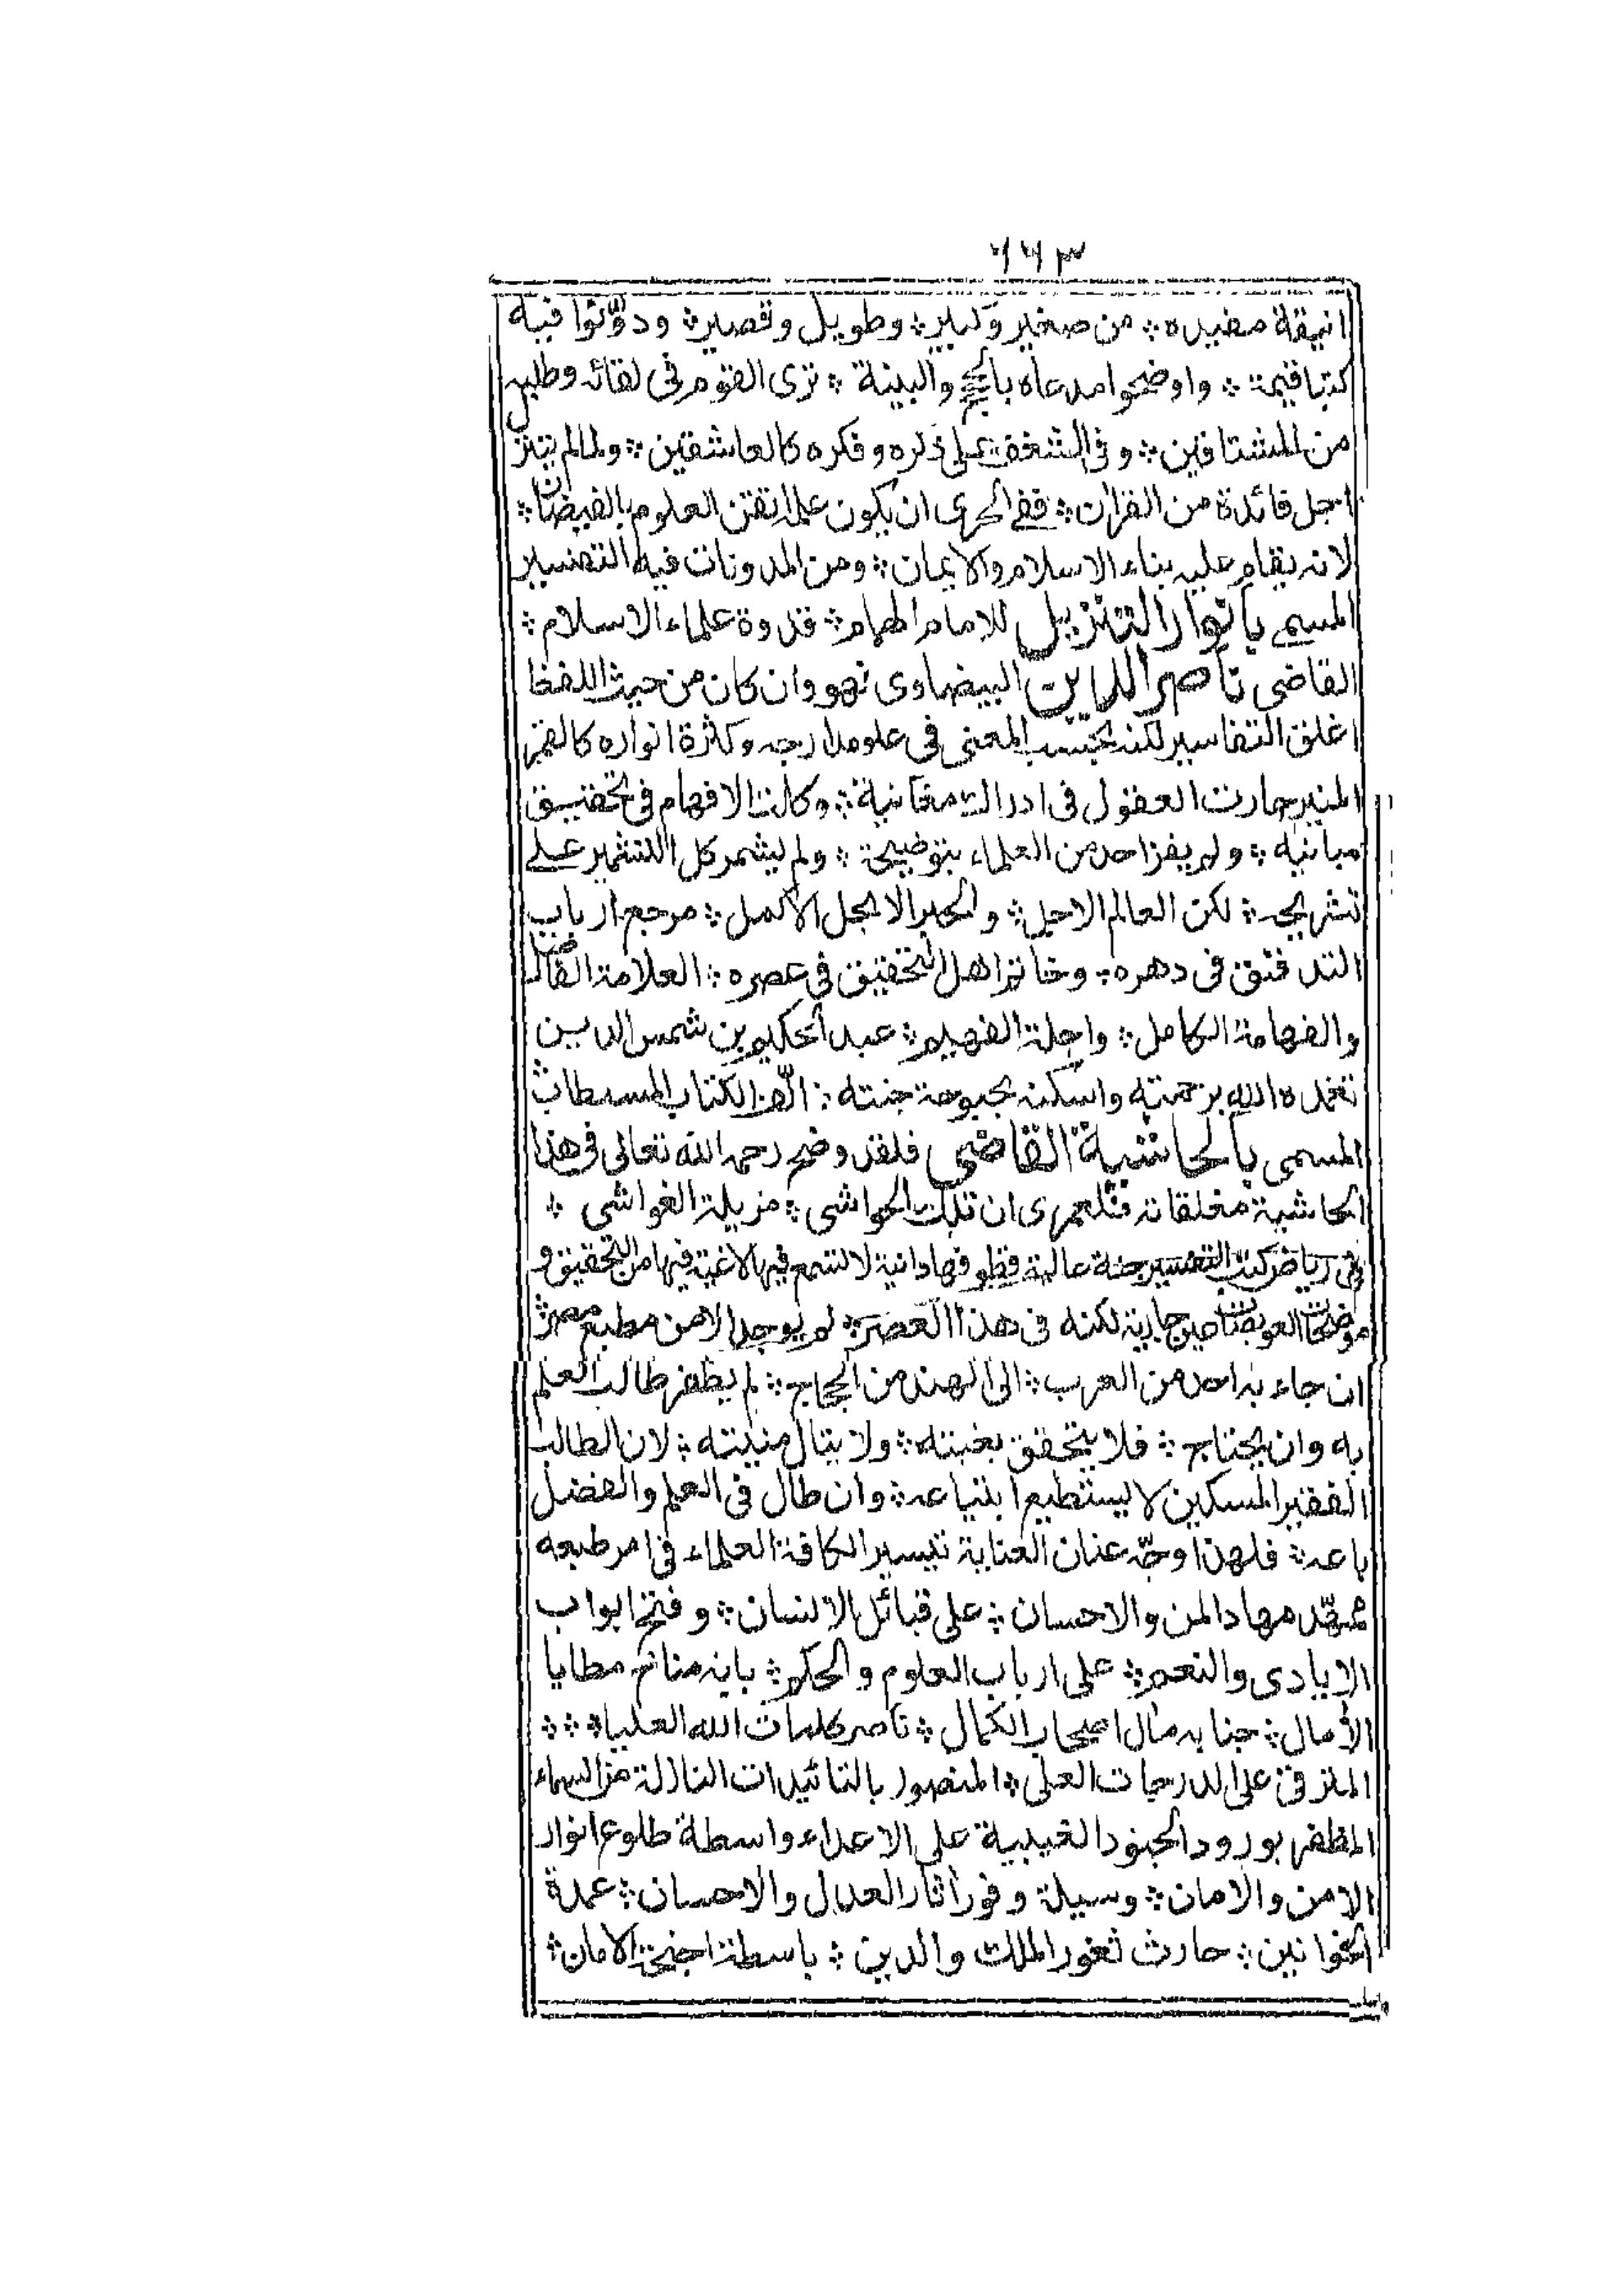 ٦٦٣
انيقة مفيده ؞ من صغير وكبير ؞ وطويل وقصير ؞ ودوّنوا فيه
كتبا قيمة ؞ واوضحوا مدعاه بالحجج والبينة ؞ ترى القوم فى لقائه وطلبه
من المشتاقين ؞ وفى الشغف على ذكره وفكره كالعاشقين ؞ ولما لم يتيز
اجل فائدة من القرأن ؞ ففى الحرى ان يكون علم اتقن العلوم بالفيضان ؞
لانه يقام عليه بناء الاسلام والايمان ؞ ومن المدونات فيه التفسير
المسمى بانوار التنزيل للامام الهمام ؞ قدوة علماء الاسلام ؞
القاضى ناصر الدين البيضاوى فهو وان كان من حيث اللفظ
اغلق التفاسير لكنه بحسب المعنى فى علو مدارجه وكثرة انواره كالقمر
المنير حارت العقول فى ادراك معانية ؞ وكلت الافهام فى تحقيق
مبانيه ؞ ولم يفز احد من العلماء بتوضيحة ؞ ولم ليشمر كل التشمير على
تشريحه ؞ لكن العالم الاجل ؞ والحبر الابجل الاكمل ؞ مرجع ارباب
التدقيق فى دهره ؞ وخاتم اهل التحقيق فى عصره ؞ العلامة الفاضل
والفهامة الكامل ؞ واجلة الفهيم ؞ عبد الحكيم بن شمس الدين
تغمده الله برحمته واسكنه بحبوحة جنته ؞ الّف الكتاب المستطاب
المسمى بالحاشية القاضى فلقد وضح رحمه الله تعالى فى هذا
الحاشية مغلقاته فلعمرى ان تلك الحواشى ؞ مزيلة الغواشى ؞
فى رياض كتب التفسير جنة عالية قطوفها دانية لا تسمع فيها لاغية فيها من التحقيق و
موضحات العويصات عين جارية لكنه فى هذا العصر ؞ لم يوجد الا من مطبع مصر ؞
ان جاء به احد من العرب ؞ الى الهند من الحجاج ؞ لم يظفر طالب العلم
به وان يحتاج ؞ فلا يتحقق بغيته ؞ ولا ينال منيته ؞ لان الطالب
الفقير المسكين لا يستطيع ابتياعه ؞ وان طال فى العلم والفضل
باعه ؞ فلهذا وجّه عنان العناية تيسيرا لكافة العلماء فى امر طبعه
ممهّد مهاد المن والاحسان ؞ على قبائل الانسان ؞ وفتح ابواب
الايادى والنعم ؞ على ارباب العلوم والحكم ؞ بابه مناخ مطايا
الأمال ؞ جنابه مآل اصحاب الكمال ؞ ناصر كلمات الله العليا ؞ ؞
المترقى على الدرجات العلى ؞ المنصور بالتائيدات النازلة من السماء
المظفر بورود الجنود الغيبية على الاعداء واسطة طلوع انوار
الامن والامان ؞ وسيلة وفور أثار العدل والاحسان ؞ عمدة
الخوانين ؞ حارث ثغور الملك والدين ؞ باسطة اجنحة الامان ؞